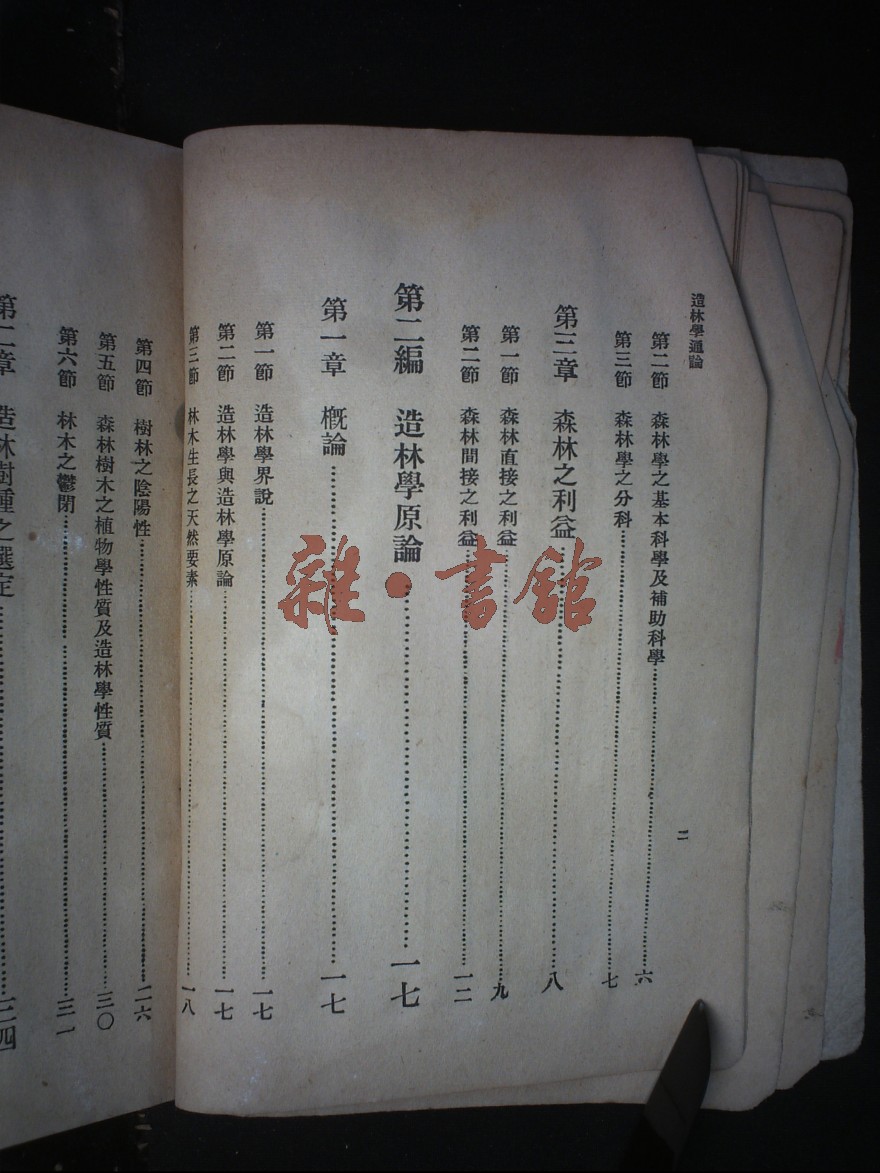 造林學通論
二
第二節 森林學之基本科學及補助科學……六
第三節 森林學之分科……七
第三章 森林之利益……八
第一節 森林直接之利益……九
第二節 森林間接之利益……一二
第二編 造林學原論……一七
第一章 概論……一七
第一節 造林學界說……一七
第二節 造林學與造林學原論……一七
第三節 林木生長之天然要素……一八
第四節 樹林之陰陽性……二六
第五節 森林樹木之植物學性質及造林學性質……三〇
第六節 林木之鬱閉……三一
第二章 造林樹種之選定……三四
雜·書館